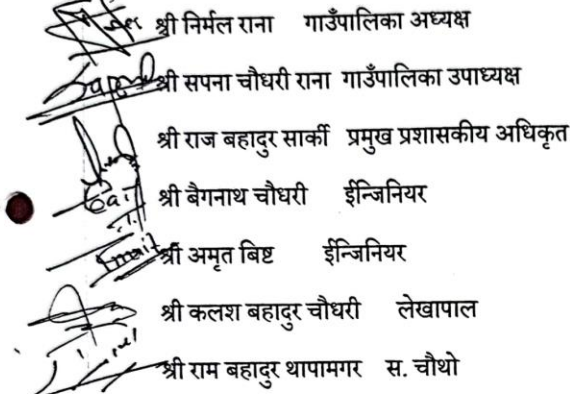 श्री निर्मल राना गाउँपालिका अध्यक्ष
श्री सपना चौधरी राना गाउँपालिका उपाध्यक्ष
श्री राज बहादुर सार्की प्रमुख प्रशासकीय अधिकृत
श्री बैगनाथ चौधरी ईन्जिनियर
श्री अमृत बिष्ट ईन्जिनियर
श्री कलश बहादुर चौधरी लेखापाल
श्री राम बहादुर थापामगर स. चौथो